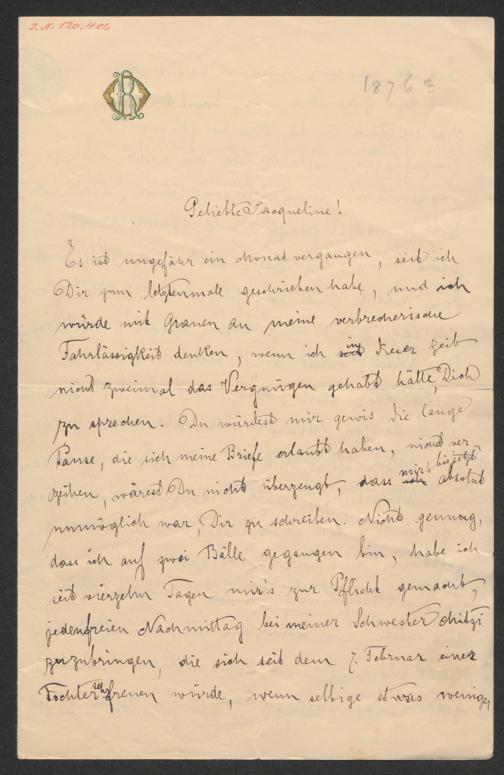 I.N. 120.406
1876
Geliebte Jacqueline!
Es ist ungefähr ein Monat vergangen, seit ich
Dir zum letztenmale geschrieben habe, und ich
würde mit Grauen an meine verbrecherische
Fahrlässigkeit denken, wenn ich in dieser Zeit
nicht zweimal das Vergnügen gehabt hätte, Dich
zu sprechen. Du würdest mir gewis die lange
Pause, die sich meine Briefe erlaubt haben, nicht ver-
zeihen, wärest Du nicht überzeugt, dass mir's bis jetzt absolut
unmöglich war, Dir zu schreiben. Nicht genung,
dass ich auf zwei Bälle gegangen bin, habe ich
seit vierzehn Tagen mir's zur Pflicht gemacht,
jeden freien Nachmittag bei meiner Schwester Mitzi
zuzubringen, die sich seit dem 7. Februar einer
Tochter sehr freuen würde, wenn selbige etwas weniger